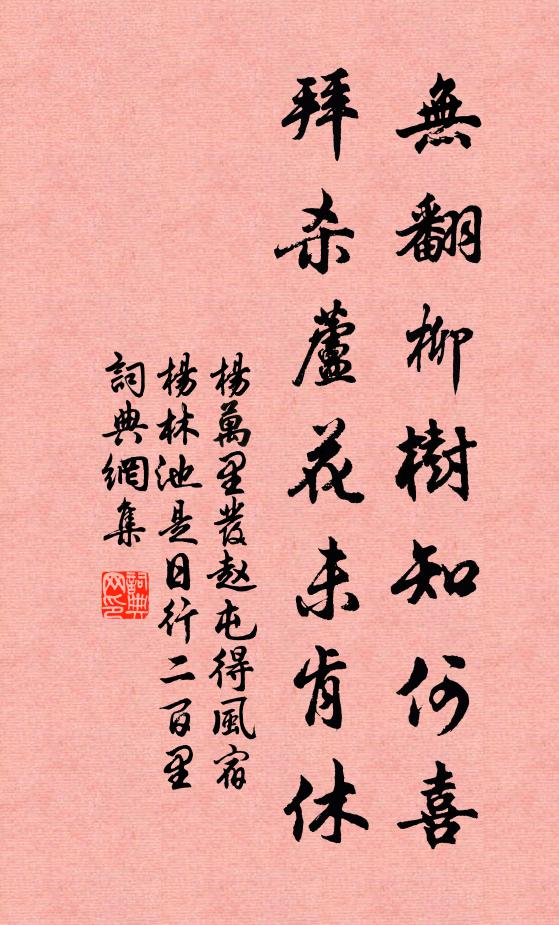 無翻柳樹知何喜
拜殺蘆花未肯休
楊萬里發趙屯得風宿
楊林池是日行二百里
詞典網集
詞典网印